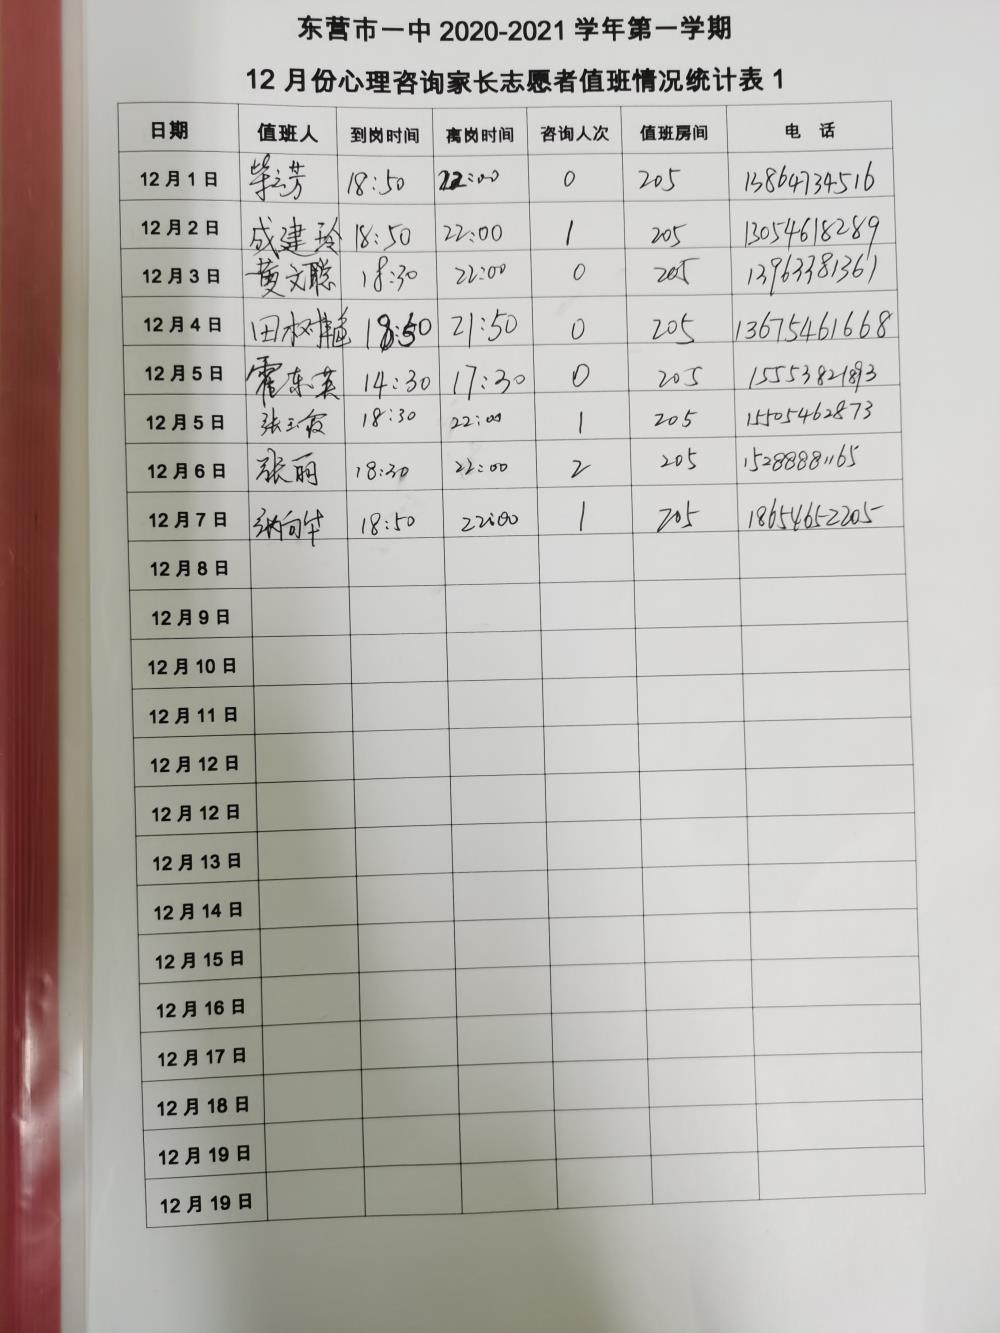 东营市一中 2020-2021 学年第一学期
12 月份心理咨询家长志愿者值班情况统计表 1
日期 值班人 到岗时间 离岗时间 咨询人次 值班房间 电 话
12 月 1 日 18:50 22:00 0 205 13864734516
12 月 2 日 成建玲 18:50 22:00 1 205 13054618289
12 月 3 日 黄文聪 18:30 22:00 0 205 13963381361
12 月 4 日 田树艳 18:50 21:50 0 205 13675461668
12 月 5 日 霍东英 14:30 17:30 0 205 15553821893
12 月 5 日 张玉霞 18:30 22:00 1 205 15505462873
12 月 6 日 张丽 18:30 22:00 2 205 15288881165
12 月 7 日 18:50 22:00 1 205 18654652205
12 月 8 日
12 月 9 日
12 月 10 日
12 月 11 日
12 月 12 日
12 月 12 日
12 月 13 日
12 月 14 日
12 月 15 日
12 月 16 日
12 月 17 日
12 月 18 日
12 月 19 日
12 月 19 日